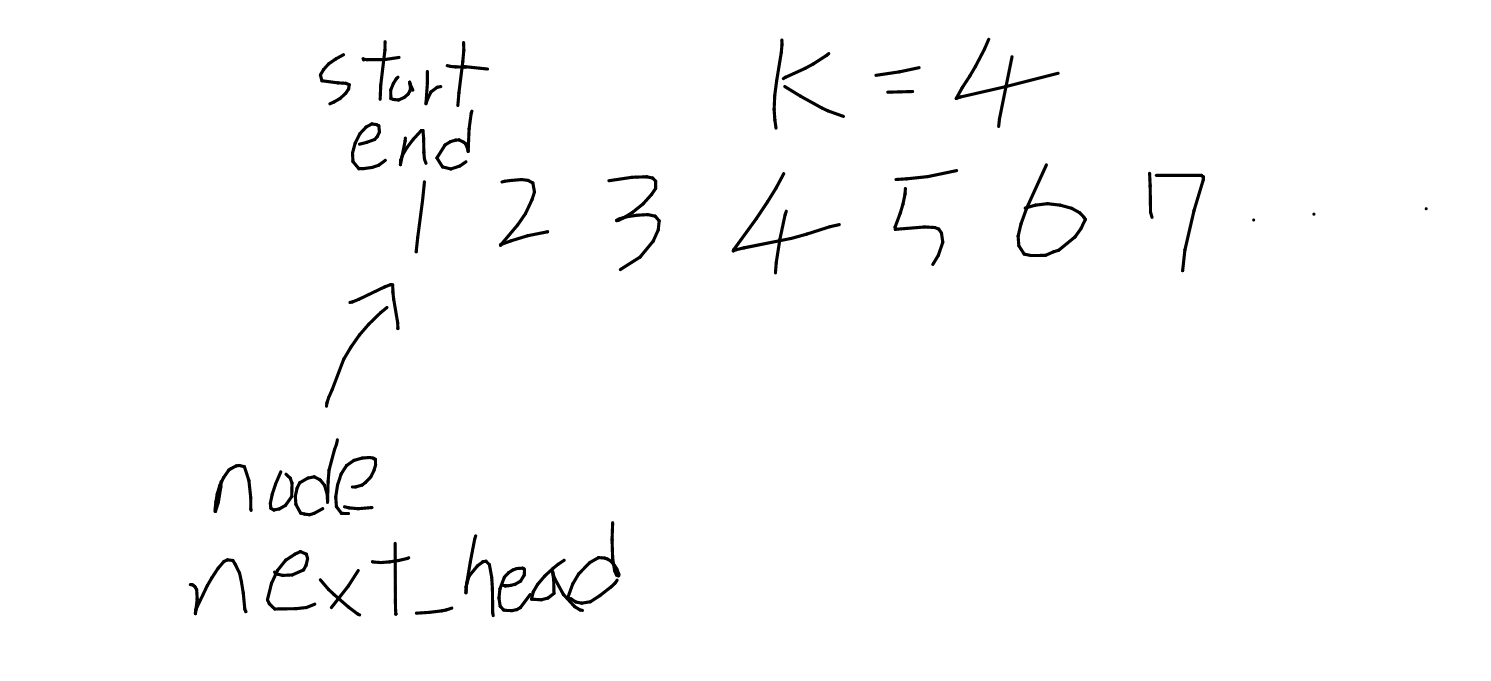 start
K = 4
end
1 2 3 4 5 6 7 . . .
node
next_head